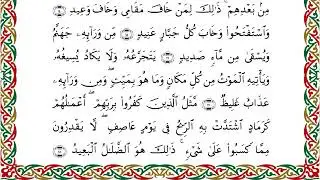 مِنۢ بَعْدِهِمْ ۚ ذَٰلِكَ لِمَنْ خَافَ مَقَامِى وَخَافَ وَعِيدِ ﴿١٤﴾
وَٱسْتَفْتَحُوا۟ وَخَابَ كُلُّ جَبَّارٍ عَنِيدٍ ﴿١٥﴾ مِّن وَرَآئِهِۦ جَهَنَّمُ
وَيُسْقَىٰ مِن مَّآءٍ صَدِيدٍ ﴿١٦﴾ يَتَجَرَّعُهُۥ وَلَا يَكَادُ يُسِيغُهُۥ
وَيَأْتِيهِ ٱلْمَوْتُ مِن كُلِّ مَكَانٍ وَمَا هُوَ بِمَيِّتٍ ۖ وَمِن وَرَآئِهِۦ
عَذَابٌ غَلِيظٌ ﴿١٧﴾ مَّثَلُ ٱلَّذِينَ كَفَرُوا۟ بِرَبِّهِمْ ۖ أَعْمَٰلُهُمْ
كَرَمَادٍ ٱشْتَدَّتْ بِهِ ٱلرِّيحُ فِى يَوْمٍ عَاصِفٍ ۖ لَّا يَقْدِرُونَ
مِمَّا كَسَبُوا۟ عَلَىٰ شَىْءٍ ۚ ذَٰلِكَ هُوَ ٱلضَّلَٰلُ ٱلْبَعِيدُ ﴿١٨﴾